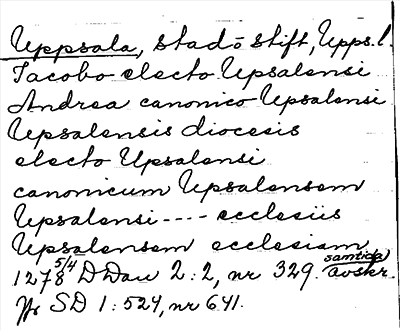 Uppsala, stad o stift, Upps. l.
Jacobo electo Upsalensi
Andrea canonico Upsalensi
Upsalensis diocesis
electo Upsalensi
canonicum Upsalensem
Upsalensi ---- ecclesiis
Upsalensem ecclesiam
1278 5/4 DDan 2:2, nr 329. samtida avskr.
Jfr SD 1:524, nr 641.